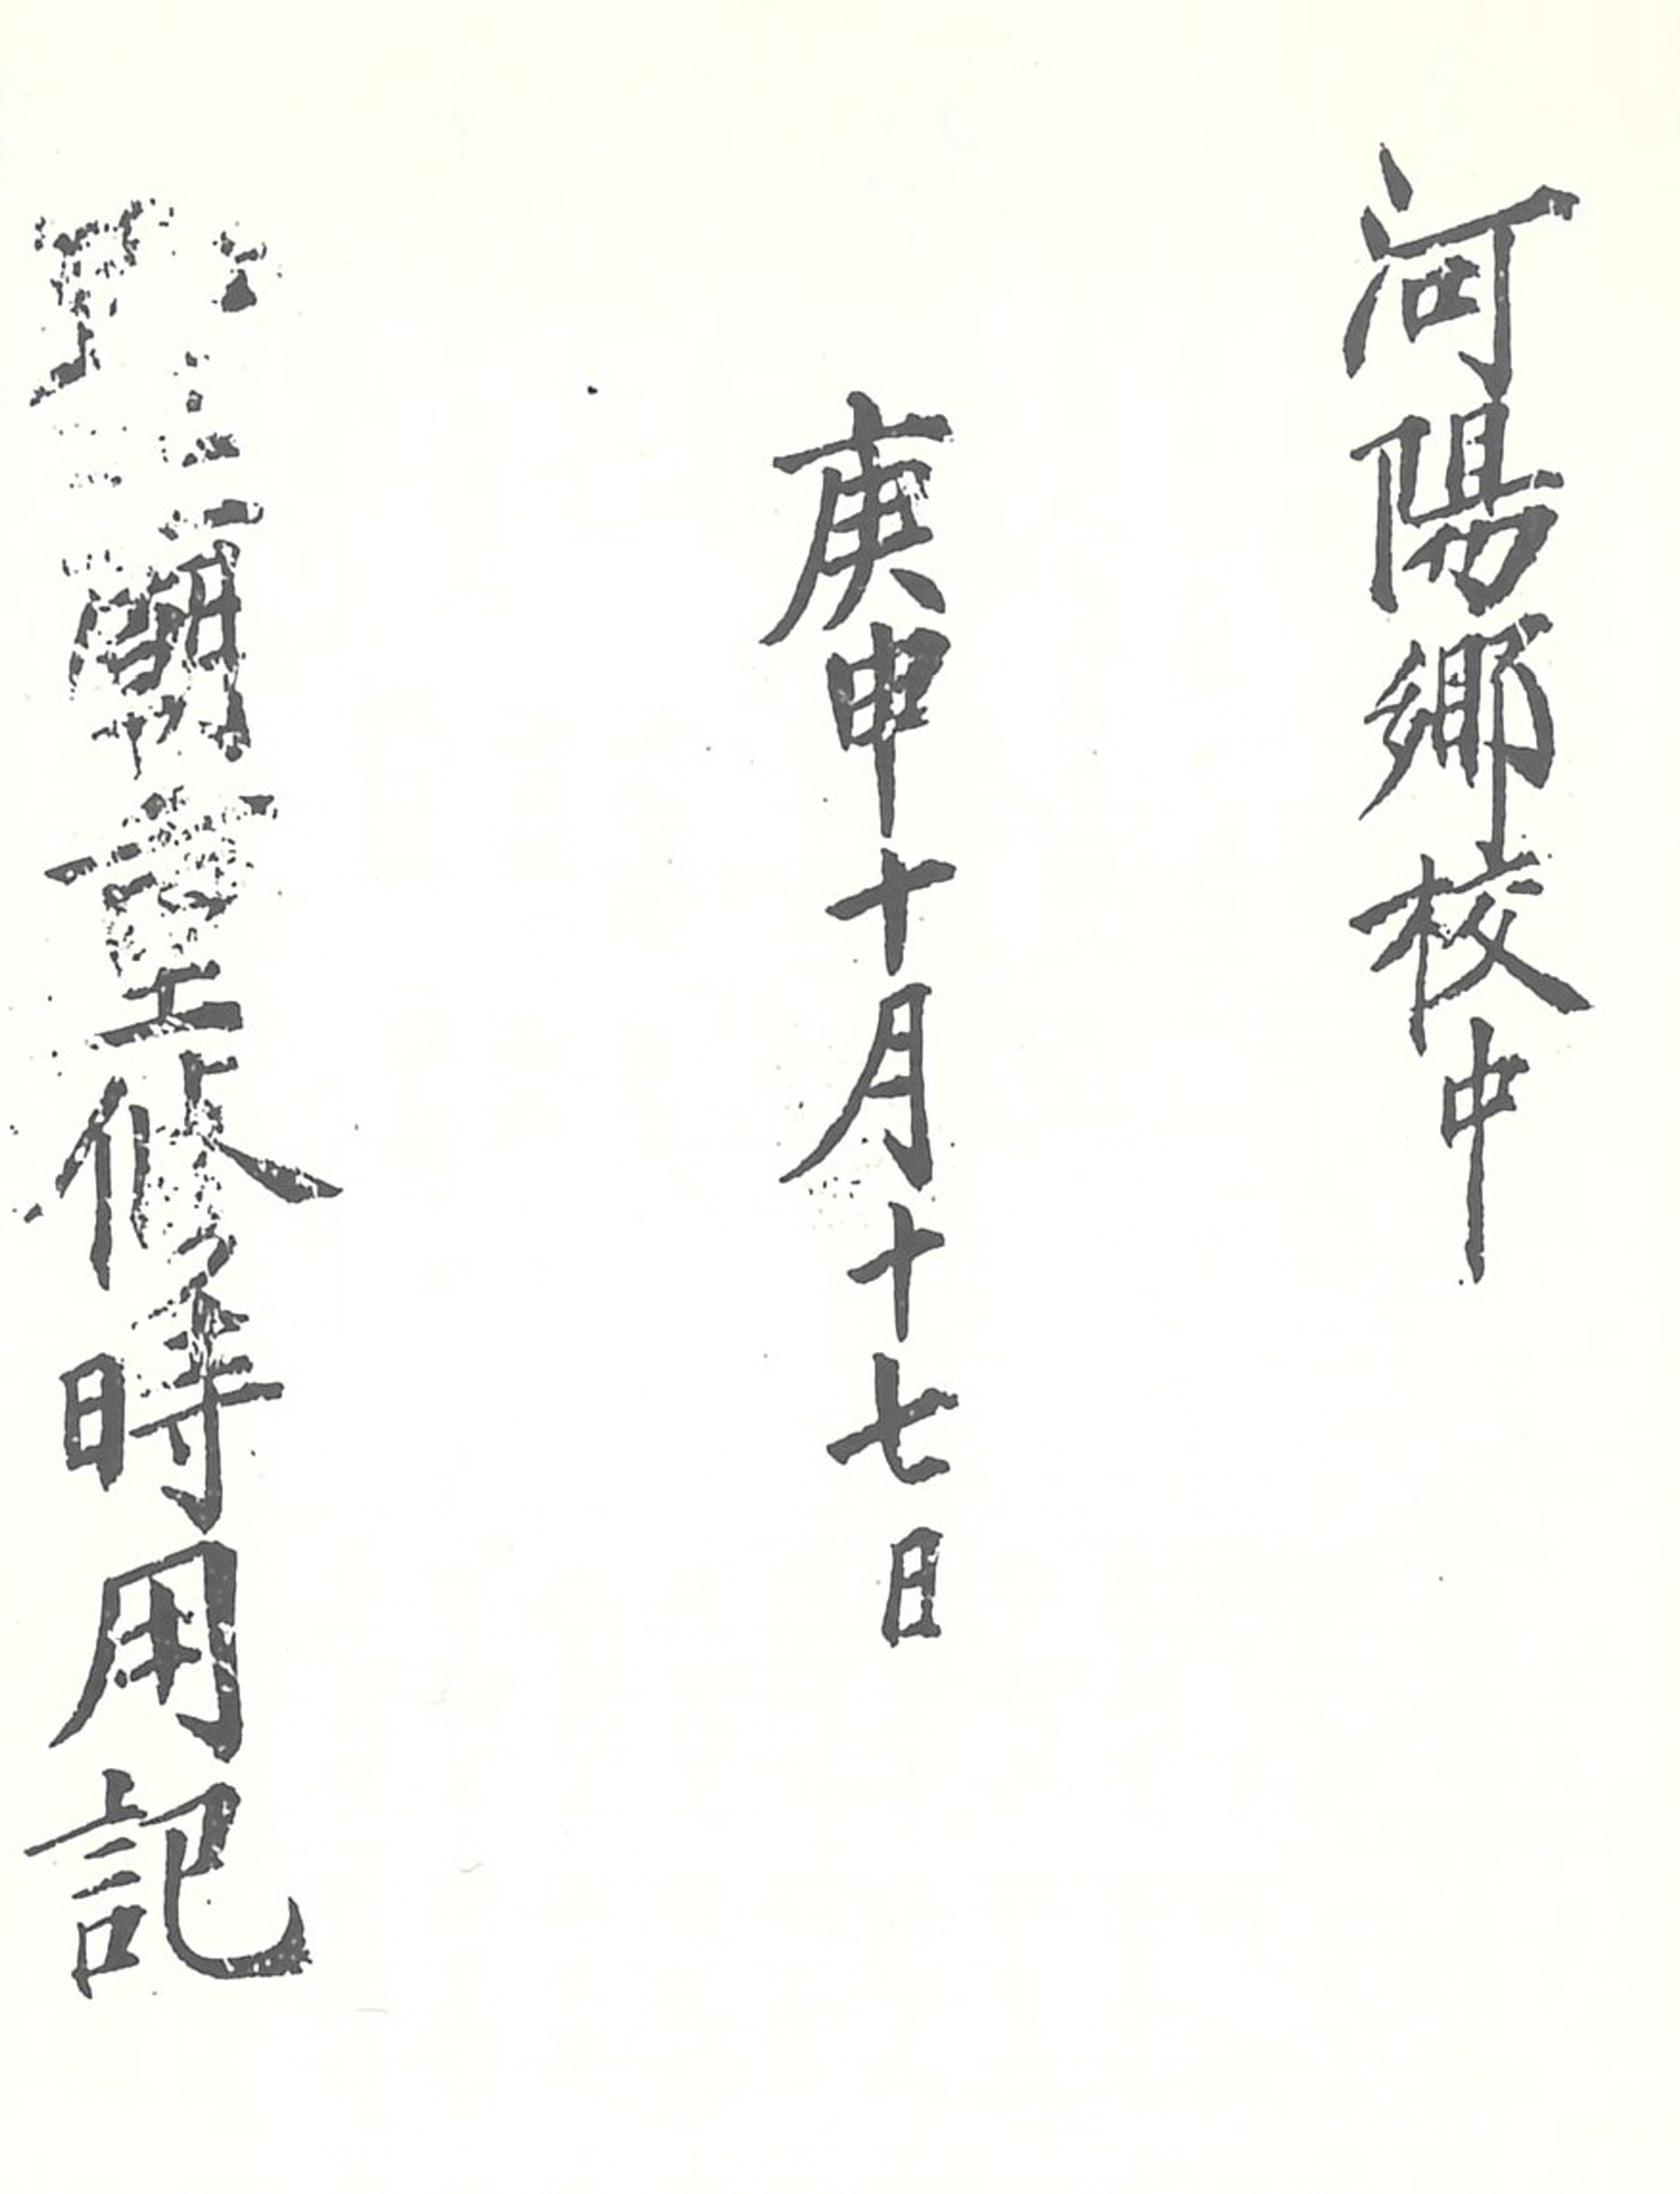 河陽鄕校中
庚申十月十七日
聖廟重修時用記